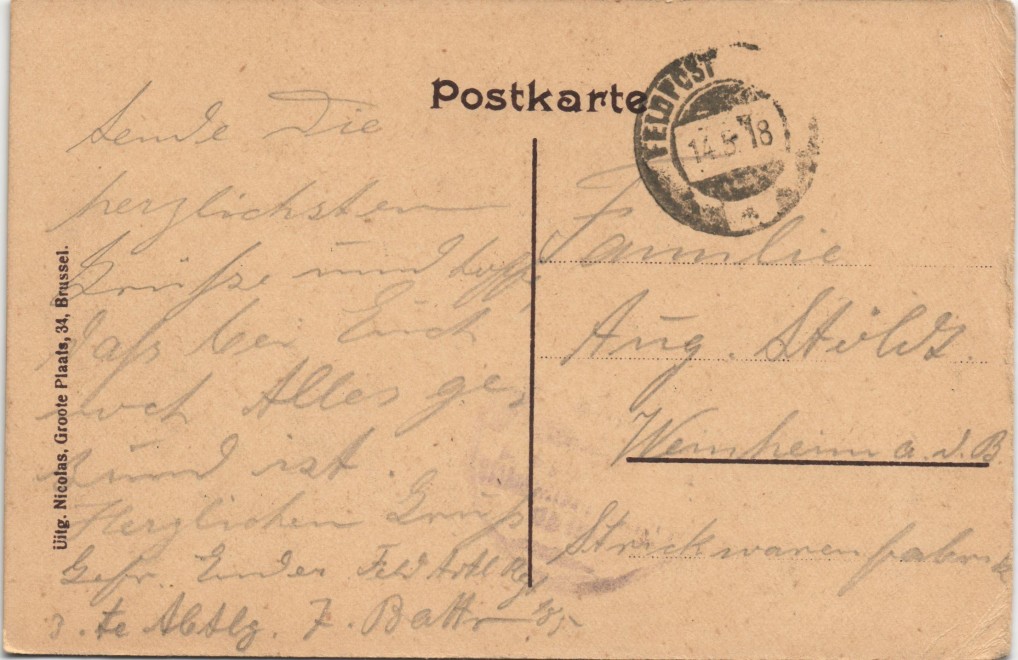 Postkarte
FELDPOST
14.5.18
sende Die
herzlichsten
Grüße und hoffe
daß bei Euch
noch Alles ge=
sund ist.
Herzlichen Gruß
Gefr. Ender Feld Artl Rg
3.te Abtlg. 7. Battr
Familie
Aug. Stolz.
Weinheim a. d. B.
Strickwarenfabrik
Uitg. Nicolas, Groote Plaats, 34, Brussel.